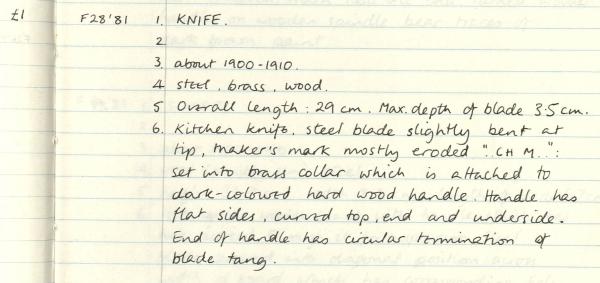 £1 F28'81 1. KNIFE.
2
3. about 1900-1910.
4 steel, brass, wood.
5 Overall length: 29 cm. Max. depth of blade 3.5 cm.
6. Kitchen knife, steel blade slightly bent at
tip, maker's mark mostly eroded "..CH M..":
set into brass collar which is attached to
dark-coloured hard wood handle. Handle has
flat sides, curved top, end and underside.
End of handle has circular termination of
blade tang.